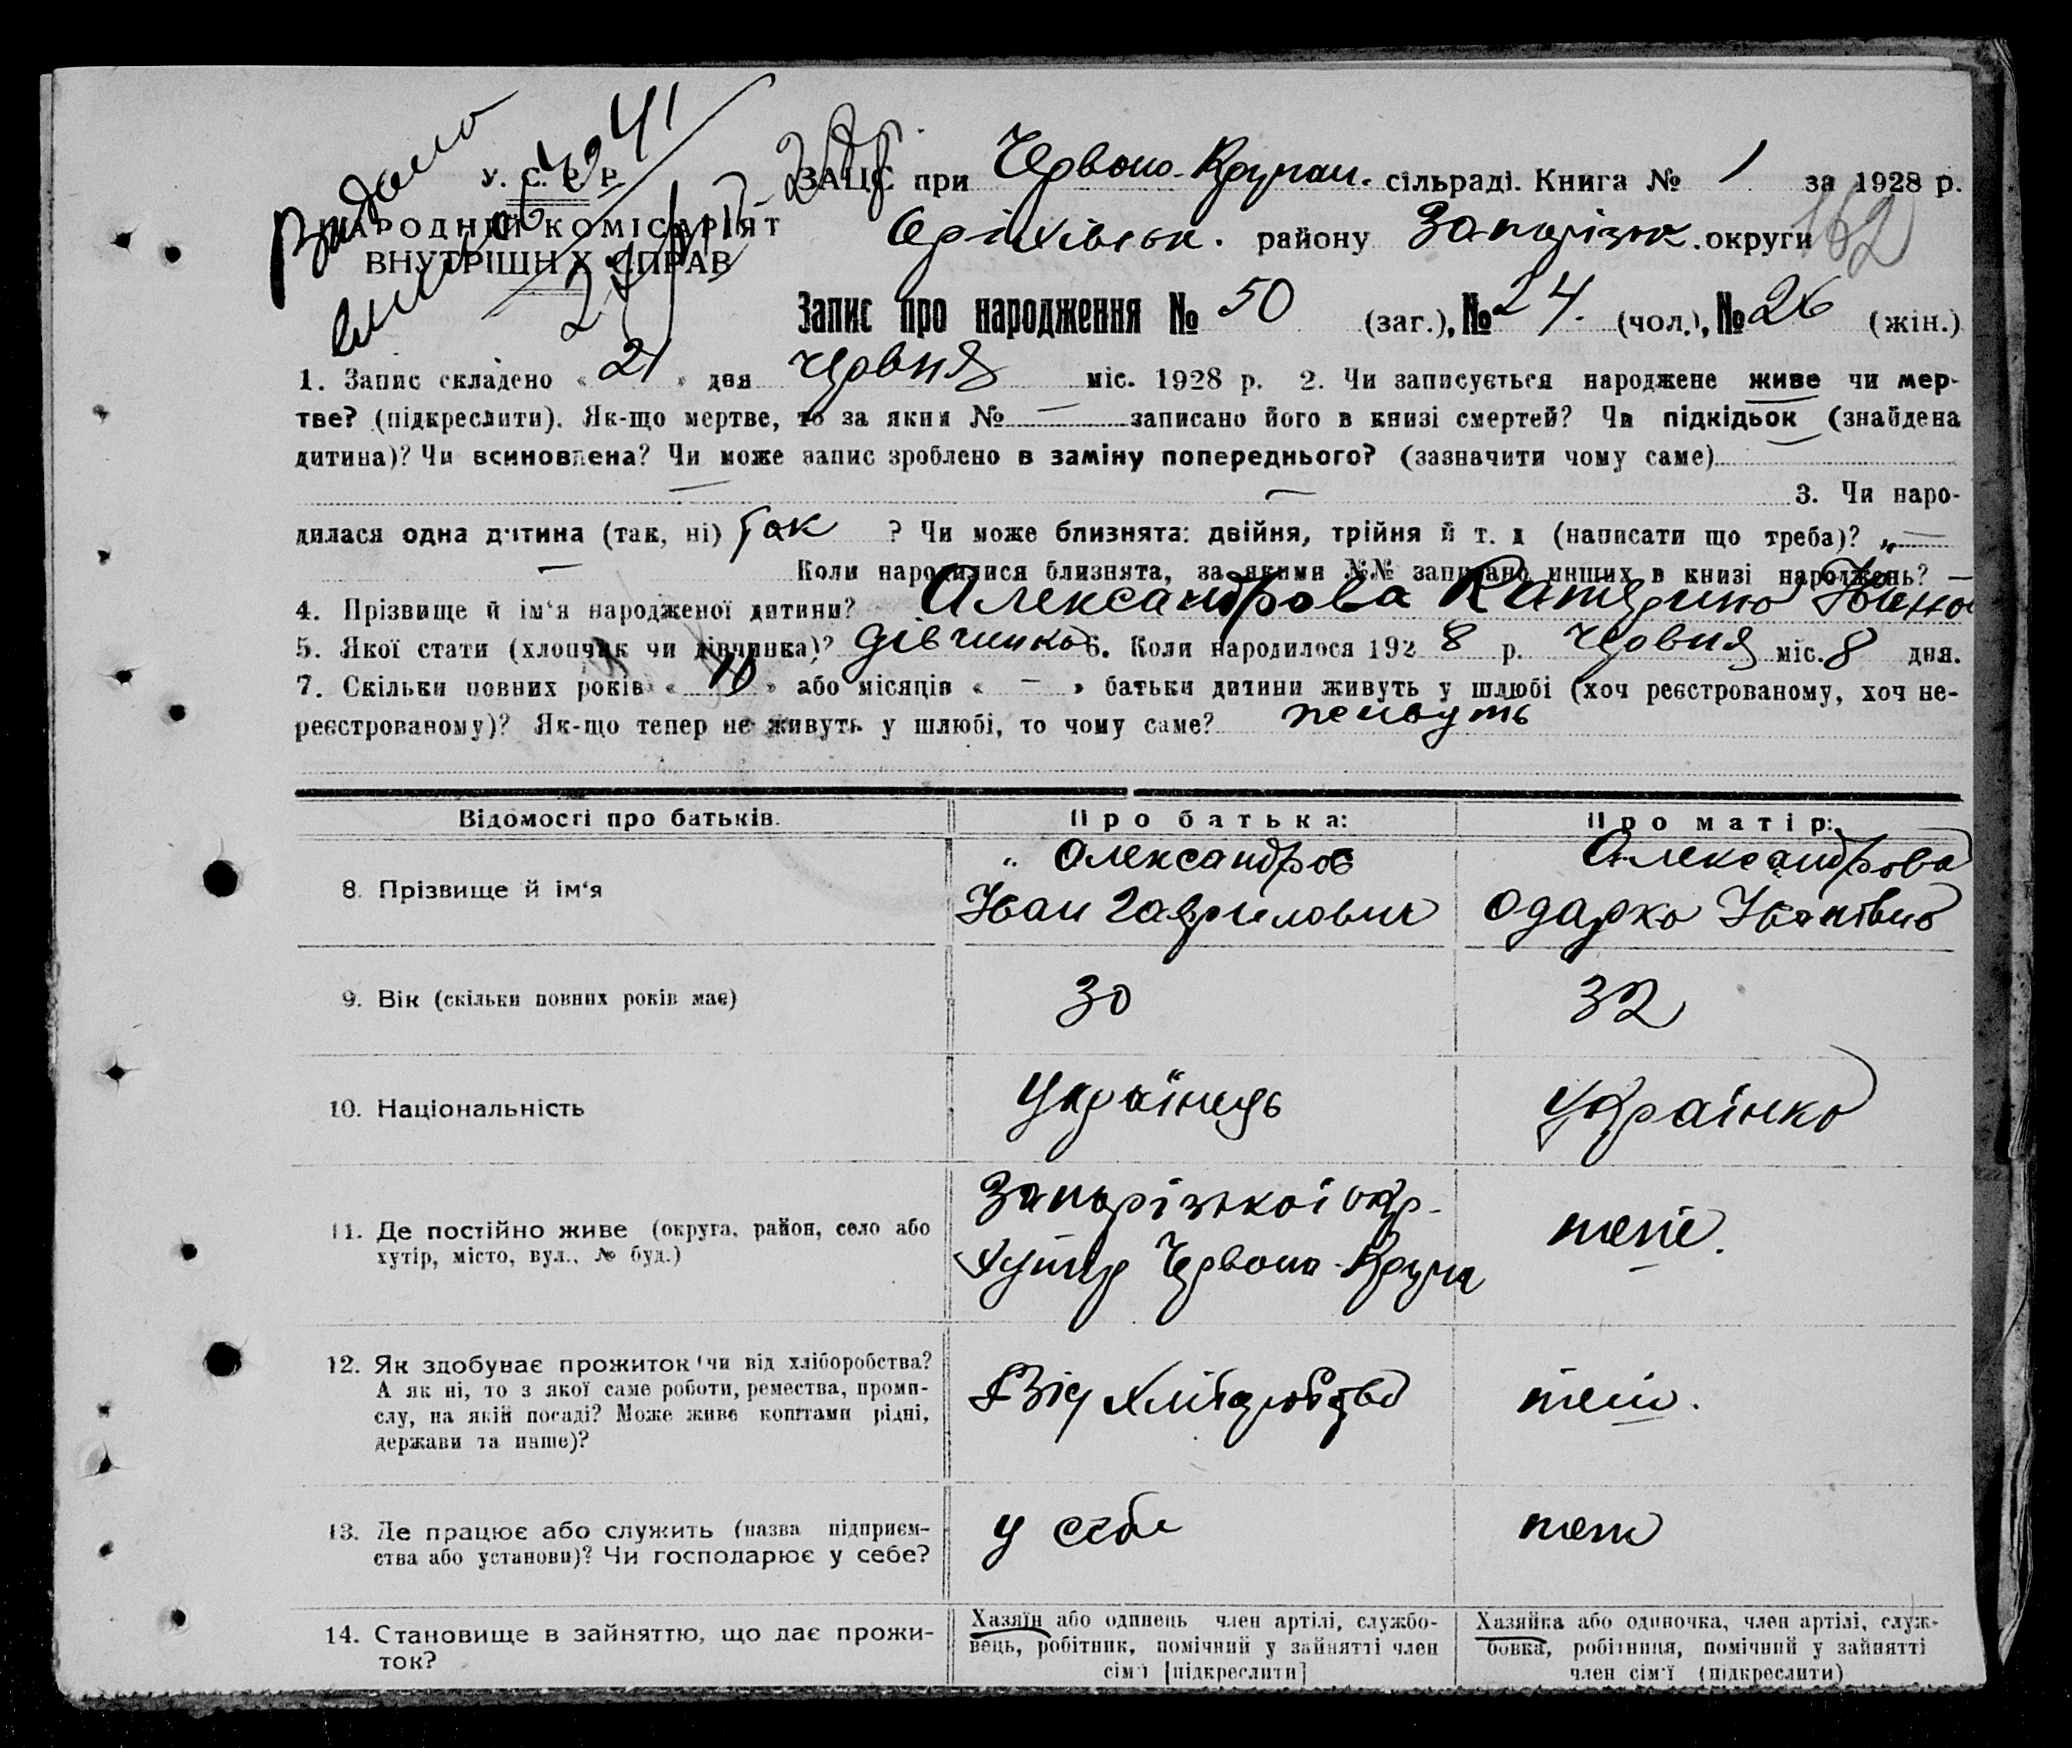 Видано
У. С. Р. Р.
НАРОДНИЙ КОМІСАРІЯТ
ВНУТРІШНІХ СПРАВ
ЗАЦС при Червоно-Крупан. сільраді. Книга № 1 за 1928 р.
Оріхівськ. району Запорізьк. округи
162
Запис про народження № 50 (заг.), № 24. (чол.), № 26 (жін.)
1. Запис складено « 21 » дня червня міс. 1928 р. 2. Чи записується народжене живе чи мер-
тве? (підкреслити). Як-що мертве, то за яким № — записано його в книзі смертей? Чи підкідьок (знайдена
дитина)? Чи всиновлена? Чи може запис зроблено в заміну попереднього? (зазначити чому саме)
— — 3. Чи наро-
дилася одна дитина (так, ні) Так ? Чи може близнята: двійня, трійня й т. д (написати що треба)? „ —
— Коли народилися близнята, за якими №№ записано инших в книзі народжень? —
4. Прізвище й ім'я народженої дитини? Александрова Катерина Іван
5. Якої стати (хлопчик чи дівчинка)? дівчинка 6. Коли народилося 1928 р. червня міс. 8 дня.
7. Скільки повних років « 10 » або місяців « — » батьки дитини живуть у шлюбі (хоч реєстрованому, хоч не-
реєстрованому)? Як-що тепер не живуть у шлюбі, то чому саме? живуть
Відомості про батьків. Про батька: Про матір:
8. Прізвище й ім'я
Олександров
Іван Гаврилович
Олександрова
Одарка Іванівна
9. Вік (скільки повних років має) 30 32
10. Національність Українець Українка
11. Де постійно живе (округа, район, село або
хутір, місто, вул., № буд.)
Запорізької окр.
Хутір Червона-Круча
теж.
12. Як здобуває прожиток чи від хліборобства?
А як ні, то з якої саме роботи, ремества, проми-
слу, на якій посаді? Може живе коштами рідні,
держави та инше)?
Від хліборобства
теж.
13. Де працює або служить (назва підприєм-
ства або установи)? Чи господарює у себе?
у себе
теж
14. Становище в зайняттю, що дає прожи-
ток?
Хазяїн або одинець член артілі, службо-
вець, робітник, помічний у зайнятті член
сім'ї [підкреслити]
Хазяйка або одиночка, член артілі, служ-
бовка, робітниця, помічний у зайнятті
член сім'ї (підкреслити)